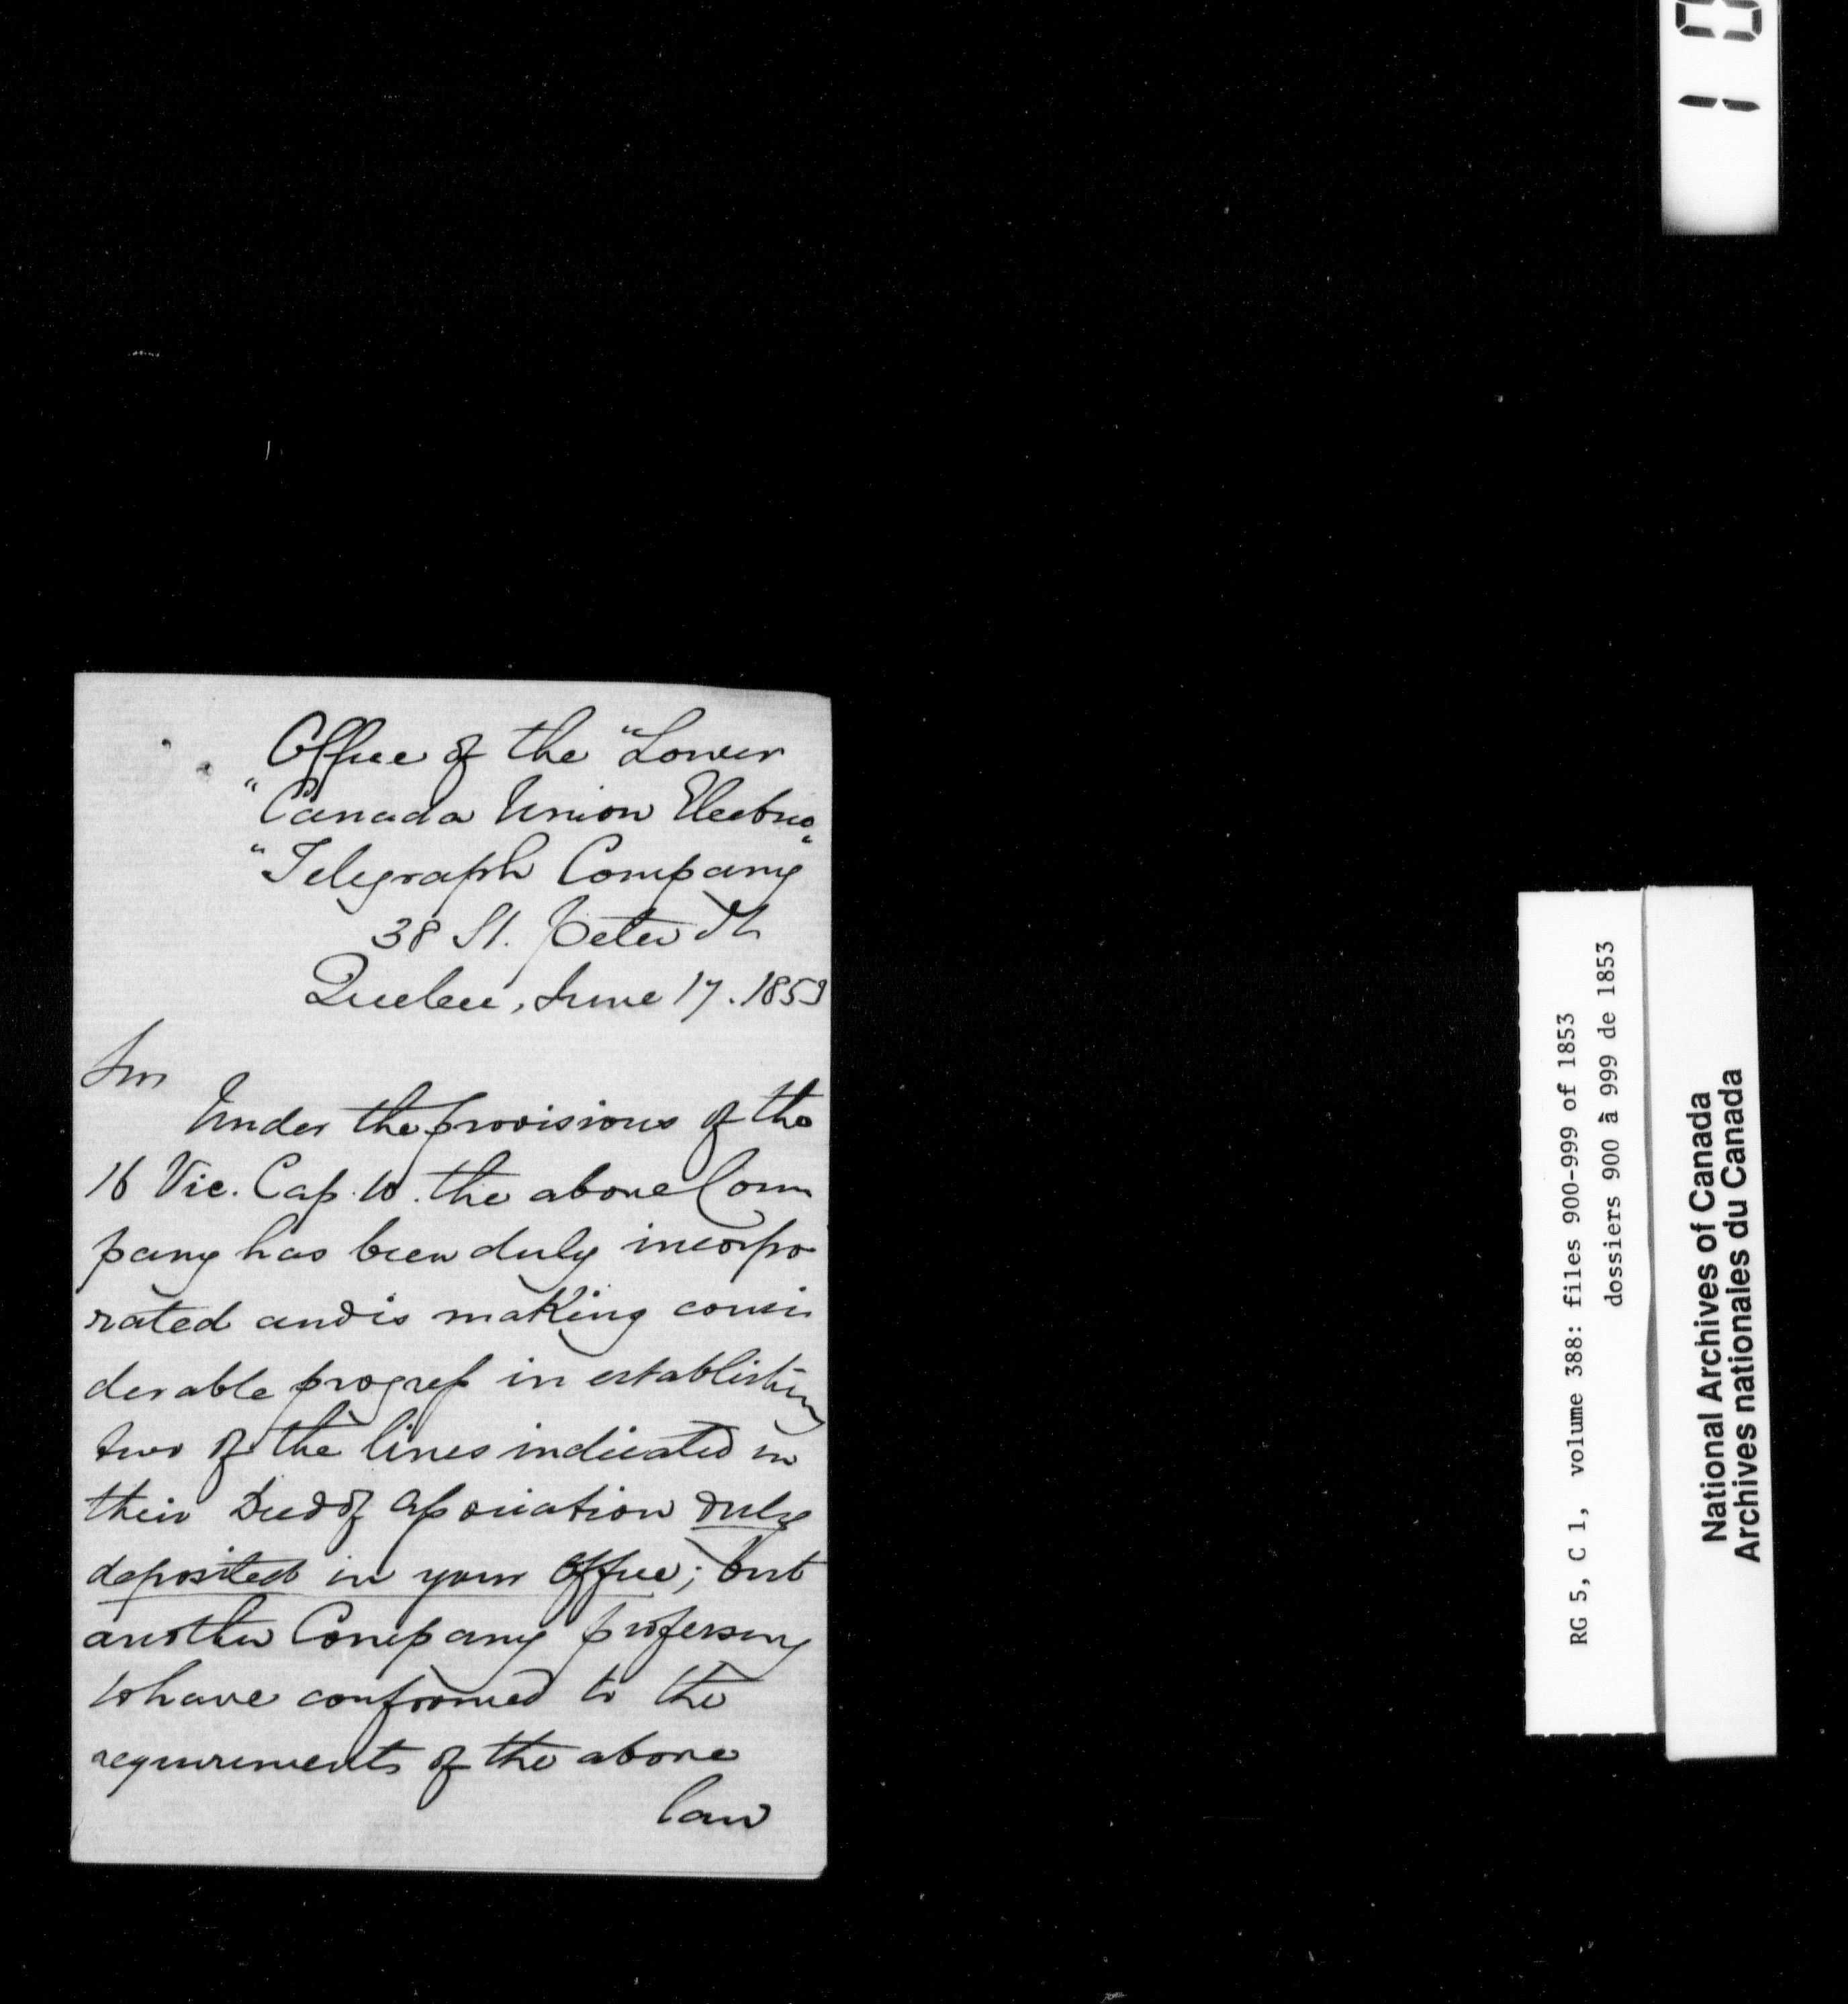 Office of the "Lower
"Canada Union Electric"
"Telegraph Company"
38 St. Peter St
Quebec, June 17. 1853
Sir
Under the provisions of the
16 Vic. Cap. 10. the above Com
pany has been duly incorpo
rated and is making consi
derable progress in establishing
two of the lines indicated in
their Deed of Association duly
deposited in your Office; but
another Company professing
to have conformed to the
requirements of the above
law
10
RG 5, C 1, volume 388: files 900-999 of 1853
dossiers 900 à 999 de 1853
National Archives of Canada
Archives nationales du Canada